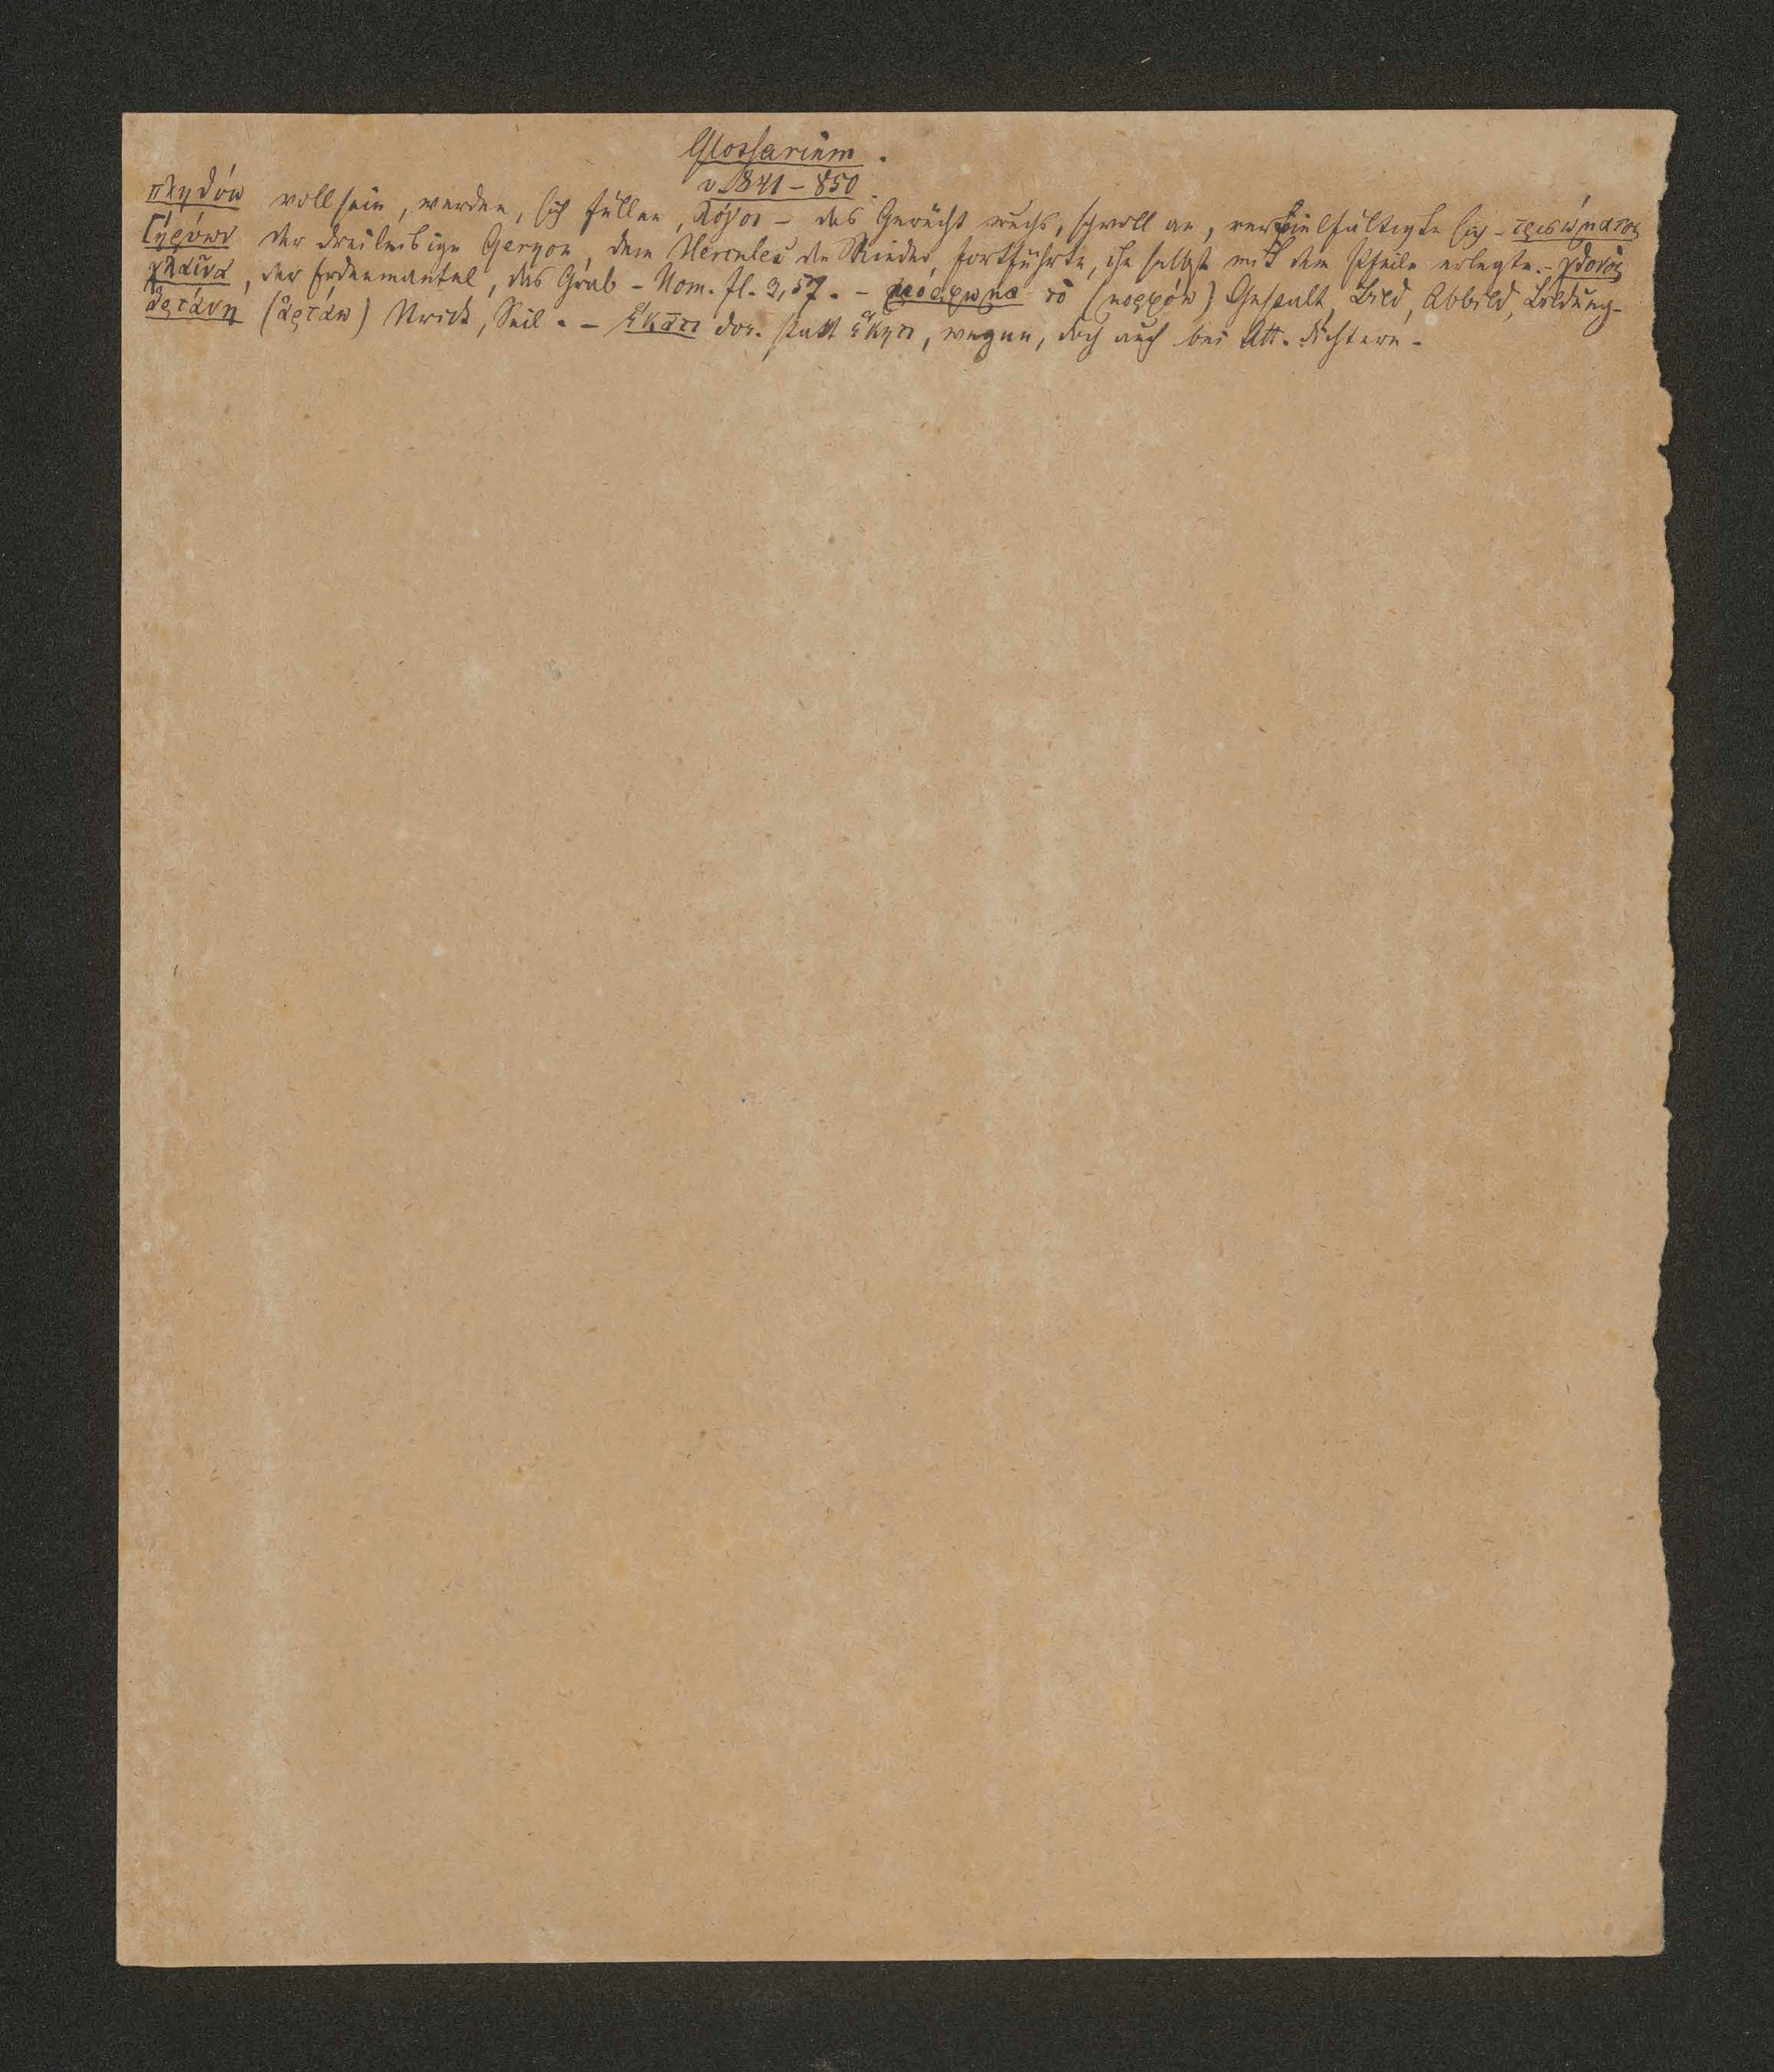 Glossarium.
v. 841 – 850.
πληθύω voll sein, werden, sich füllen, λόγοι – das Gerücht wuchs, schwoll an, vervielfältigte sich – τρισώματος
Γηρύων der dreileibige Geryon, dem Hercules die Rinder fortführte, ihn selbst mit dem Pfeile erlegte. – χθονὸς
χλαῖνα, der Erdenmantel, das Grab – Hom. Il. 3,57. – μόρφωμα τό (μορφόω) Gestalt, Bild, Abbild, Bildung –
ἀρτάνη (ἀρτάω) Strick, Seil. – ἕκατι dor. statt ἕκητι, wegen, doch auch bei Att. Dichtern –